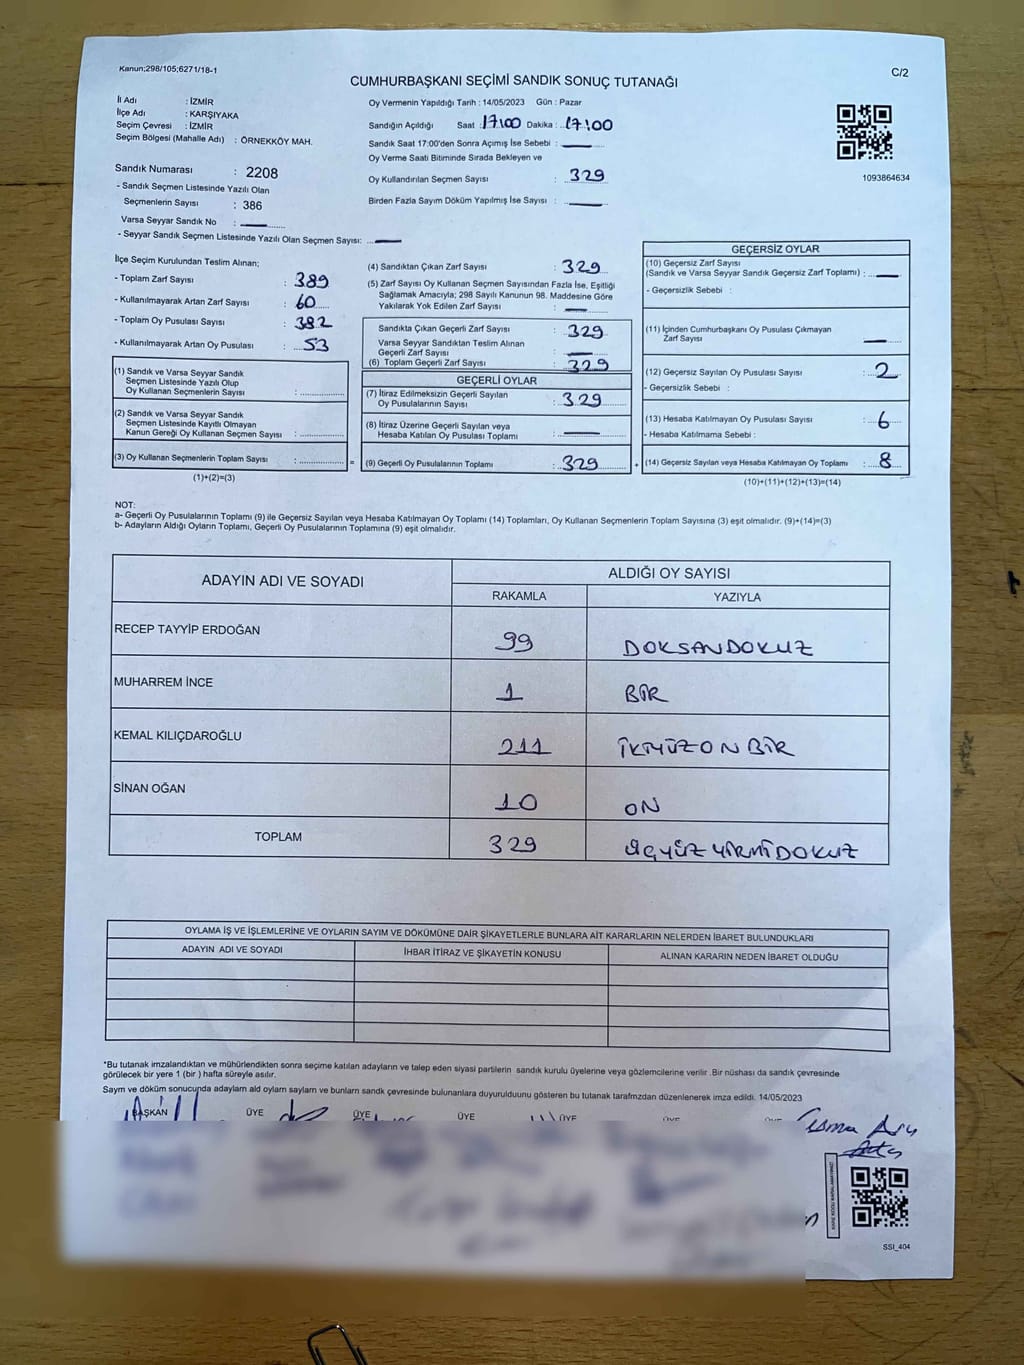 Kanun;298/105;6271/18-1
C/2
CUMHURBAŞKANI SEÇİMİ SANDIK SONUÇ TUTANAĞI
İl Adı : İZMİR
İlçe Adı : KARŞIYAKA
Seçim Çevresi : İZMİR
Seçim Bölgesi (Mahalle Adı) : ÖRNEKKÖY MAH.
Sandık Numarası : 2208
- Sandık Seçmen Listesinde Yazılı Olan
Seçmenlerin Sayısı : 386
Varsa Seyyar Sandık No :
- Seyyar Sandık Seçmen Listesinde Yazılı Olan Seçmen Sayısı:
Oy Vermenin Yapıldığı Tarih : 14/05/2023 Gün : Pazar
Sandığın Açıldığı Saat : 17:00 Dakika : 17:00
Sandık Saat 17:00'den Sonra Açımış İse Sebebi :
Oy Verme Saati Bitiminde Sırada Bekleyen ve
Oy Kullandırılan Seçmen Sayısı : 329
Birden Fazla Sayım Döküm Yapılmış İse Sayısı :
1093864634
İlçe Seçim Kurulundan Teslim Alınan;
- Toplam Zarf Sayısı : 389
- Kullanılmayarak Artan Zarf Sayısı : 60
- Toplam Oy Pusulası Sayısı : 382
- Kullanılmayarak Artan Oy Pusulası : 53
(1) Sandık ve Varsa Seyyar Sandık
Seçmen Listesinde Yazılı Olup
Oy Kullanan Seçmenlerin Sayısı :
(2) Sandık ve Varsa Seyyar Sandık
Seçmen Listesinde Kayıtlı Olmayan
Kanun Gereği Oy Kullanan Seçmen Sayısı :
(3) Oy Kullanan Seçmenlerin Toplam Sayısı : =
(1)+(2)=(3)
(4) Sandıktan Çıkan Zarf Sayısı : 329
(5) Zarf Sayısı Oy Kullanan Seçmen Sayısından Fazla İse, Eşitliği
Sağlamak Amacıyla; 298 Sayılı Kanunun 98. Maddesine Göre
Yakılarak Yok Edilen Zarf Sayısı :
Sandıkta Çıkan Geçerli Zarf Sayısı : 329
Varsa Seyyar Sandıktan Teslim Alınan
Geçerli Zarf Sayısı :
(6) Toplam Geçerli Zarf Sayısı : 329
GEÇERLİ OYLAR
(7) İtiraz Edilmeksizin Geçerli Sayılan
Oy Pusulalarının Sayısı : 329
(8) İtiraz Üzerine Geçerli Sayılan veya
Hesaba Katılan Oy Pusulası Toplamı :
(9) Geçerli Oy Pusulalarının Toplamı : 329 +
GEÇERSİZ OYLAR
(10) Geçersiz Zarf Sayısı
(Sandık ve Varsa Seyyar Sandık Geçersiz Zarf Toplamı) :
- Geçersizlik Sebebi :
(11) İçinden Cumhurbaşkanı Oy Pusulası Çıkmayan
Zarf Sayısı
(12) Geçersiz Sayılan Oy Pusulası Sayısı : 2
- Geçersizlik Sebebi :
(13) Hesaba Katılmayan Oy Pusulası Sayısı : 6
- Hesaba Katılmama Sebebi :
(14) Geçersiz Sayılan veya Hesaba Katılmayan Oy Toplamı : 8
(10)+(11)+(12)+(13)=(14)
NOT:
a- Geçerli Oy Pusulalarının Toplamı (9) ile Geçersiz Sayılan veya Hesaba Katılmayan Oy Toplamı (14) Toplamları, Oy Kullanan Seçmenlerin Toplam Sayısına (3) eşit olmalıdır. (9)+(14)=(3)
b- Adayların Aldığı Oyların Toplamı, Geçerli Oy Pusulalarının Toplamına (9) eşit olmalıdır.
ADAYIN ADI VE SOYADI ALDIĞI OY SAYISI
RAKAMLA YAZIYLA
RECEP TAYYİP ERDOĞAN 99 DOKSANDOKUZ
MUHARREM İNCE 1 BİR
KEMAL KILIÇDAROĞLU 211 İKİYÜZONBİR
SİNAN OĞAN 10 ON
TOPLAM 329 ÜÇYÜZYİRMİDOKUZ
OYLAMA İŞ VE İŞLEMLERİNE VE OYLARIN SAYIM VE DÖKÜMÜNE DAİR ŞİKAYETLERLE BUNLARA AİT KARARLARIN NELERDEN İBARET BULUNDUKLARI
ADAYIN ADI VE SOYADI İHBAR İTİRAZ VE ŞİKAYETİN KONUSU ALINAN KARARIN NEDEN İBARET OLDUĞU
*Bu tutanak imzalandıktan ve mühürlendikten sonra seçime katılan adayların ve talep eden siyasi partilerin sandık kurulu üyelerine veya gözlemcilerine verilir .Bir nüshası da sandık çevresinde
görülecek bir yere 1 (bir ) hafta süreyle asılır.
Sayım ve döküm sonucunda adayların ald oyların sayların ve bunların sandk çevresinde bulunanlara duyurulduunu gösteren bu tutanak tarafmzdan düzenlenerek imza edildi. 14/05/2023
BAŞKAN ÜYE ÜYE ÜYE ÜYE
SSI_404